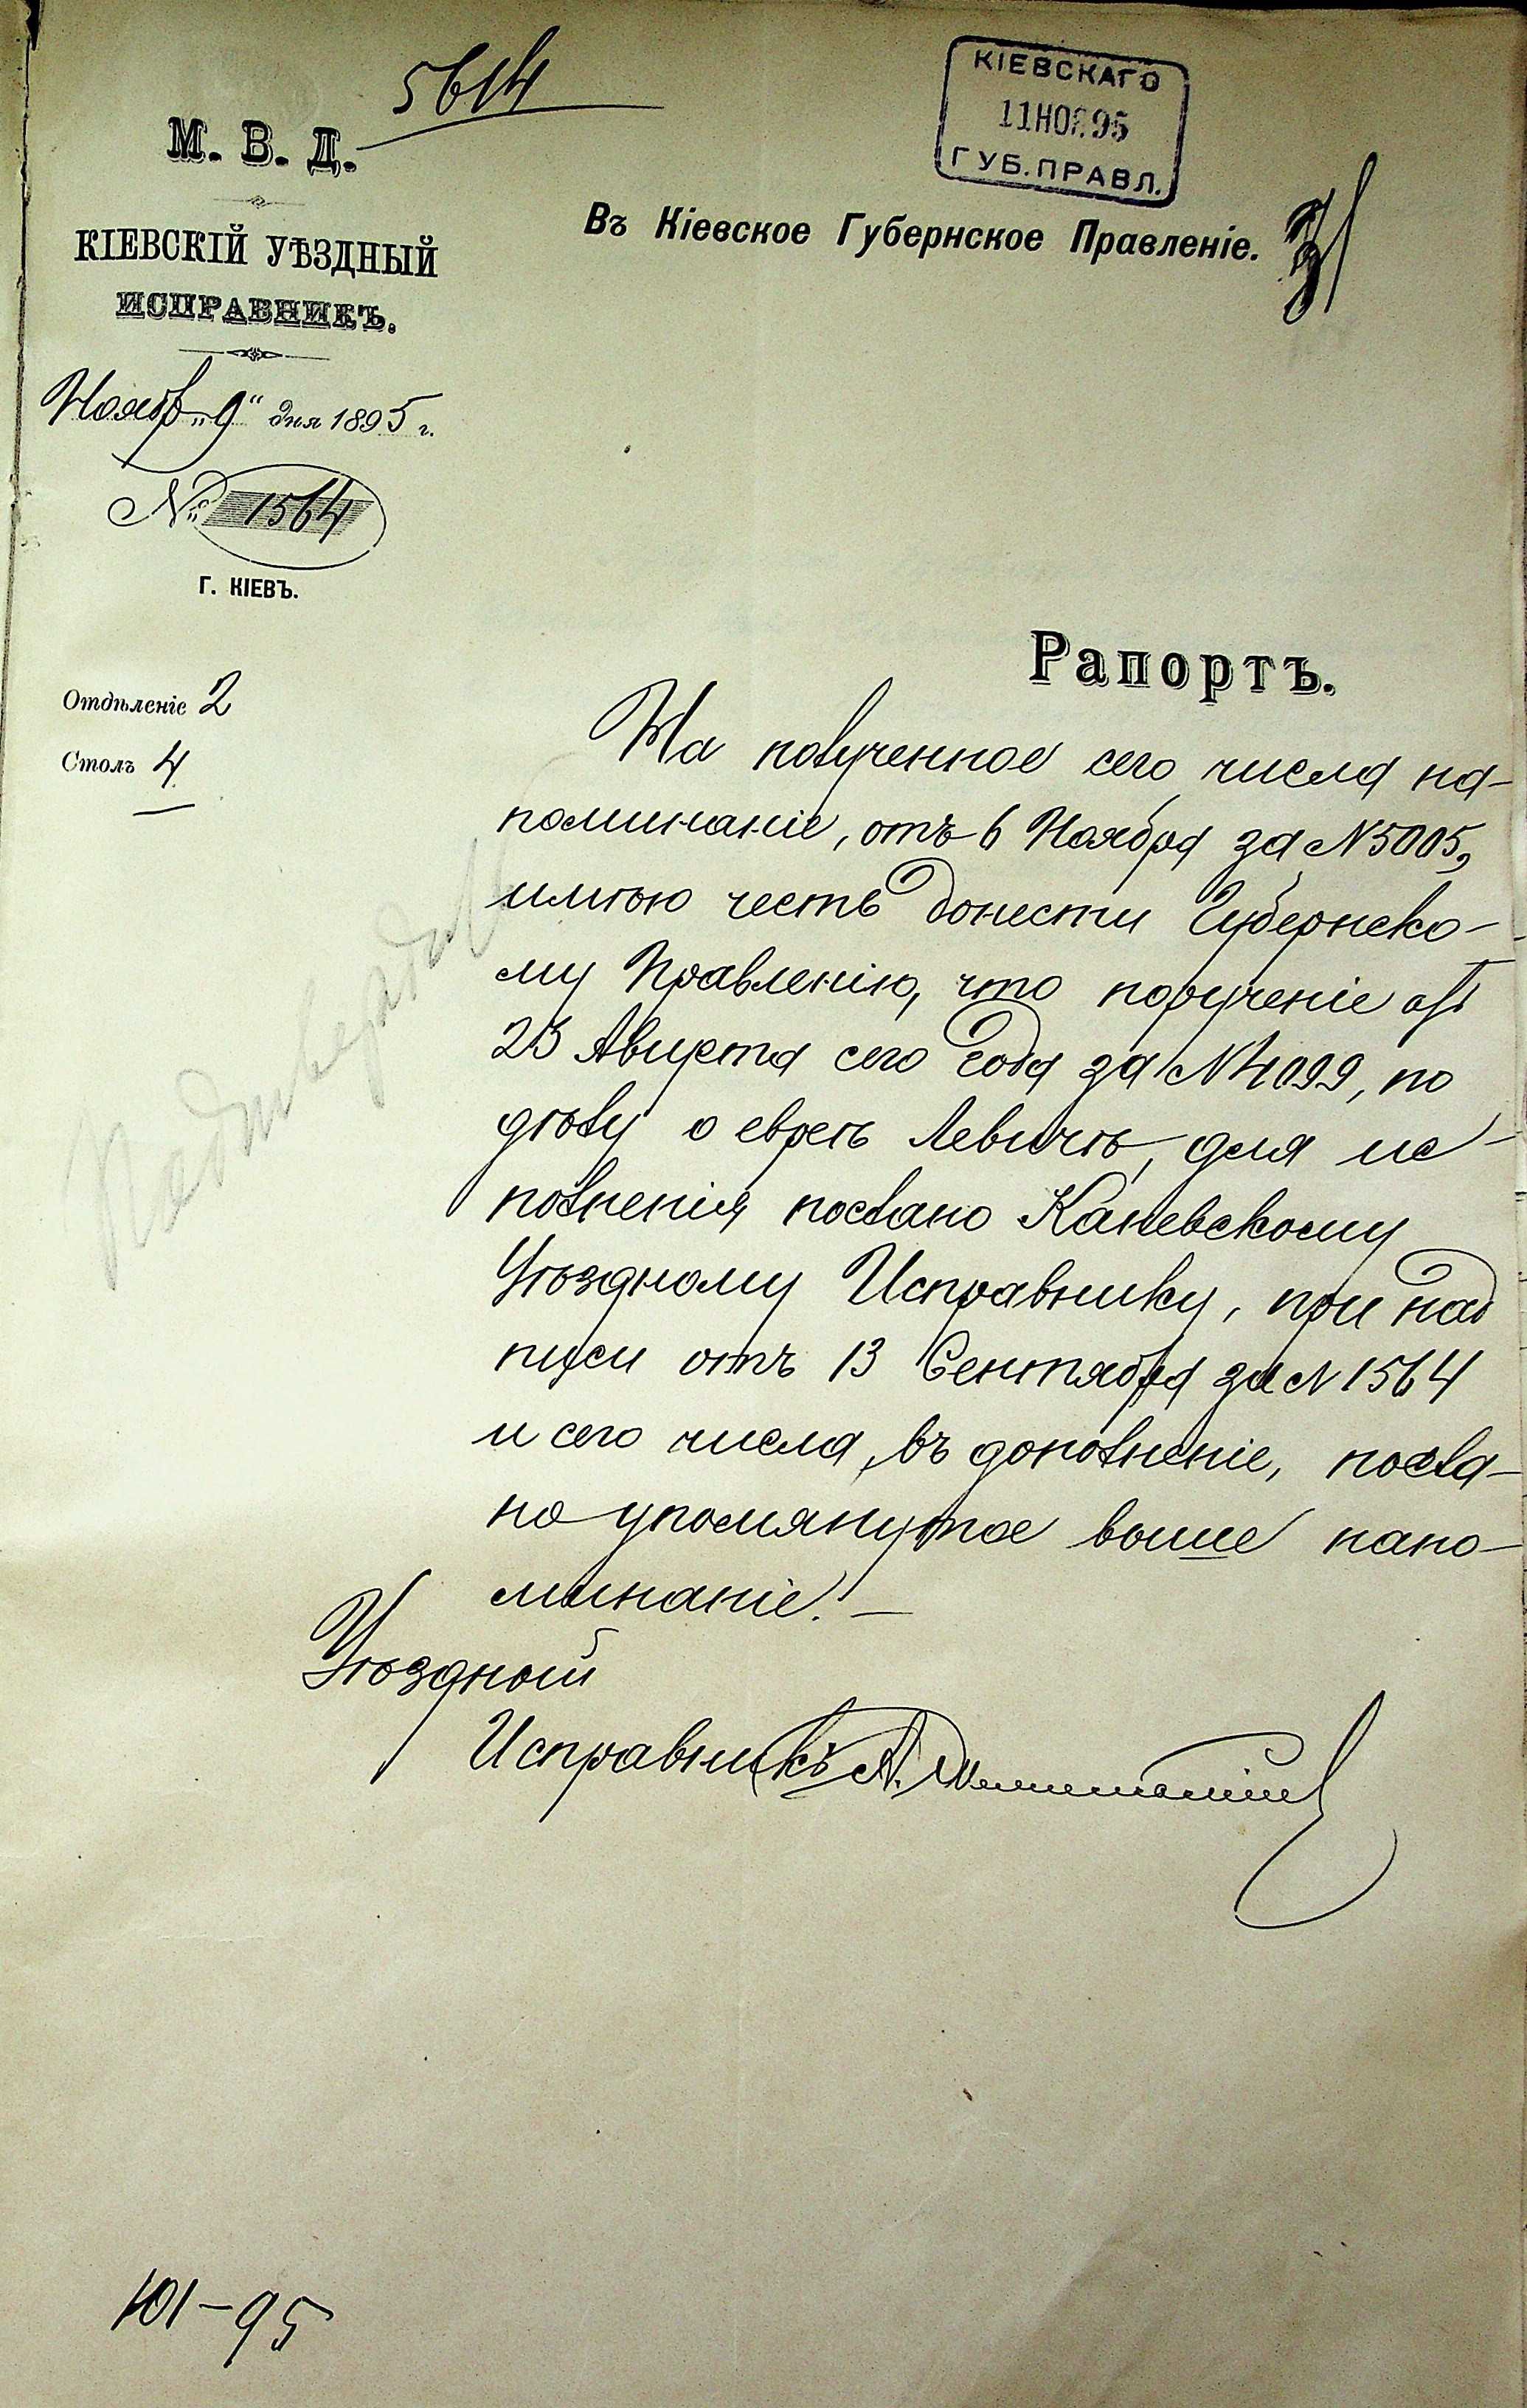 5614
КІЕВСКАГО
11 НОЯ 95
ГУБ. ПРАВЛ.
М. В. Д.
КІЕВСКІЙ УѢЗДНЫЙ
ИСПРАВНИКЪ.
Въ Кіевское Губернское Правленіе.
Ноябр „9“ дня 1895 г.
№ 1564
Г. КІЕВЪ.
Отдѣленіе 2
Столъ 4
Рапортъ.
На полученное сего числа на-
поминаніе, отъ 6 Ноября за N 5005,
имѣю честь донести Губернско-
му Правленію, что порученіе отъ
23 Августа сего года за N 4099, по
дѣлу о евреѣ Левичѣ, для ис-
полненія послано Каневскому
Уѣздному Исправнику, при над
писи отъ 13 Сентября за N 1564
и сего числа, въ дополненіе, посла-
но упомянутое выше напо-
минаніе.
Уѣздный
Исправникъ А.
101-95